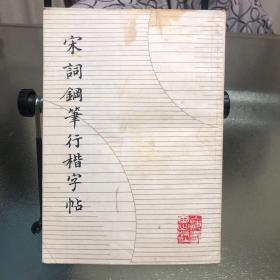 宋詞鋼筆行楷字帖